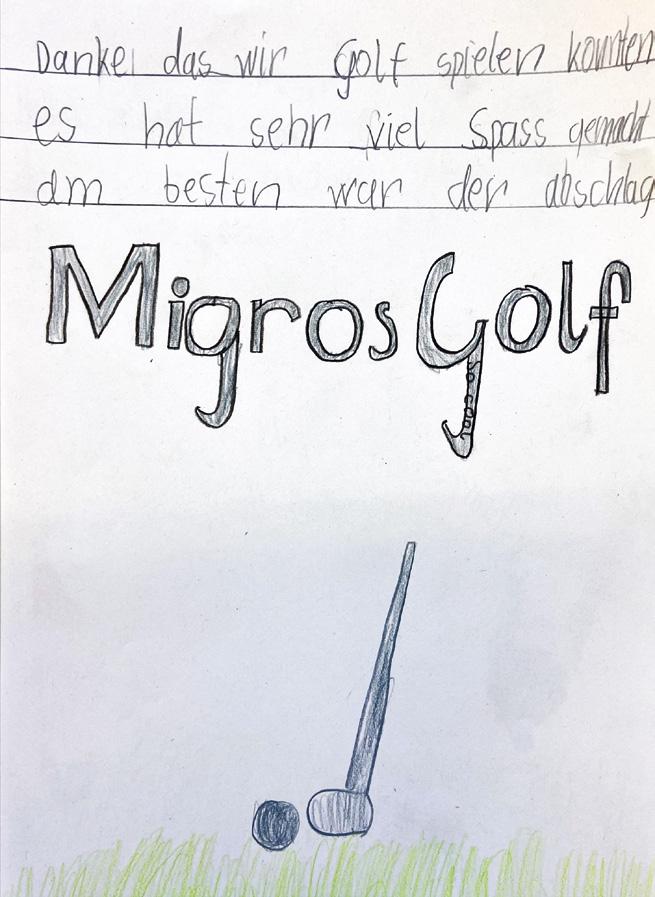 Danke das wir Golf spielen konnten
es hat sehr viel Spass gemacht
am besten war der abschlag
Migros Golf